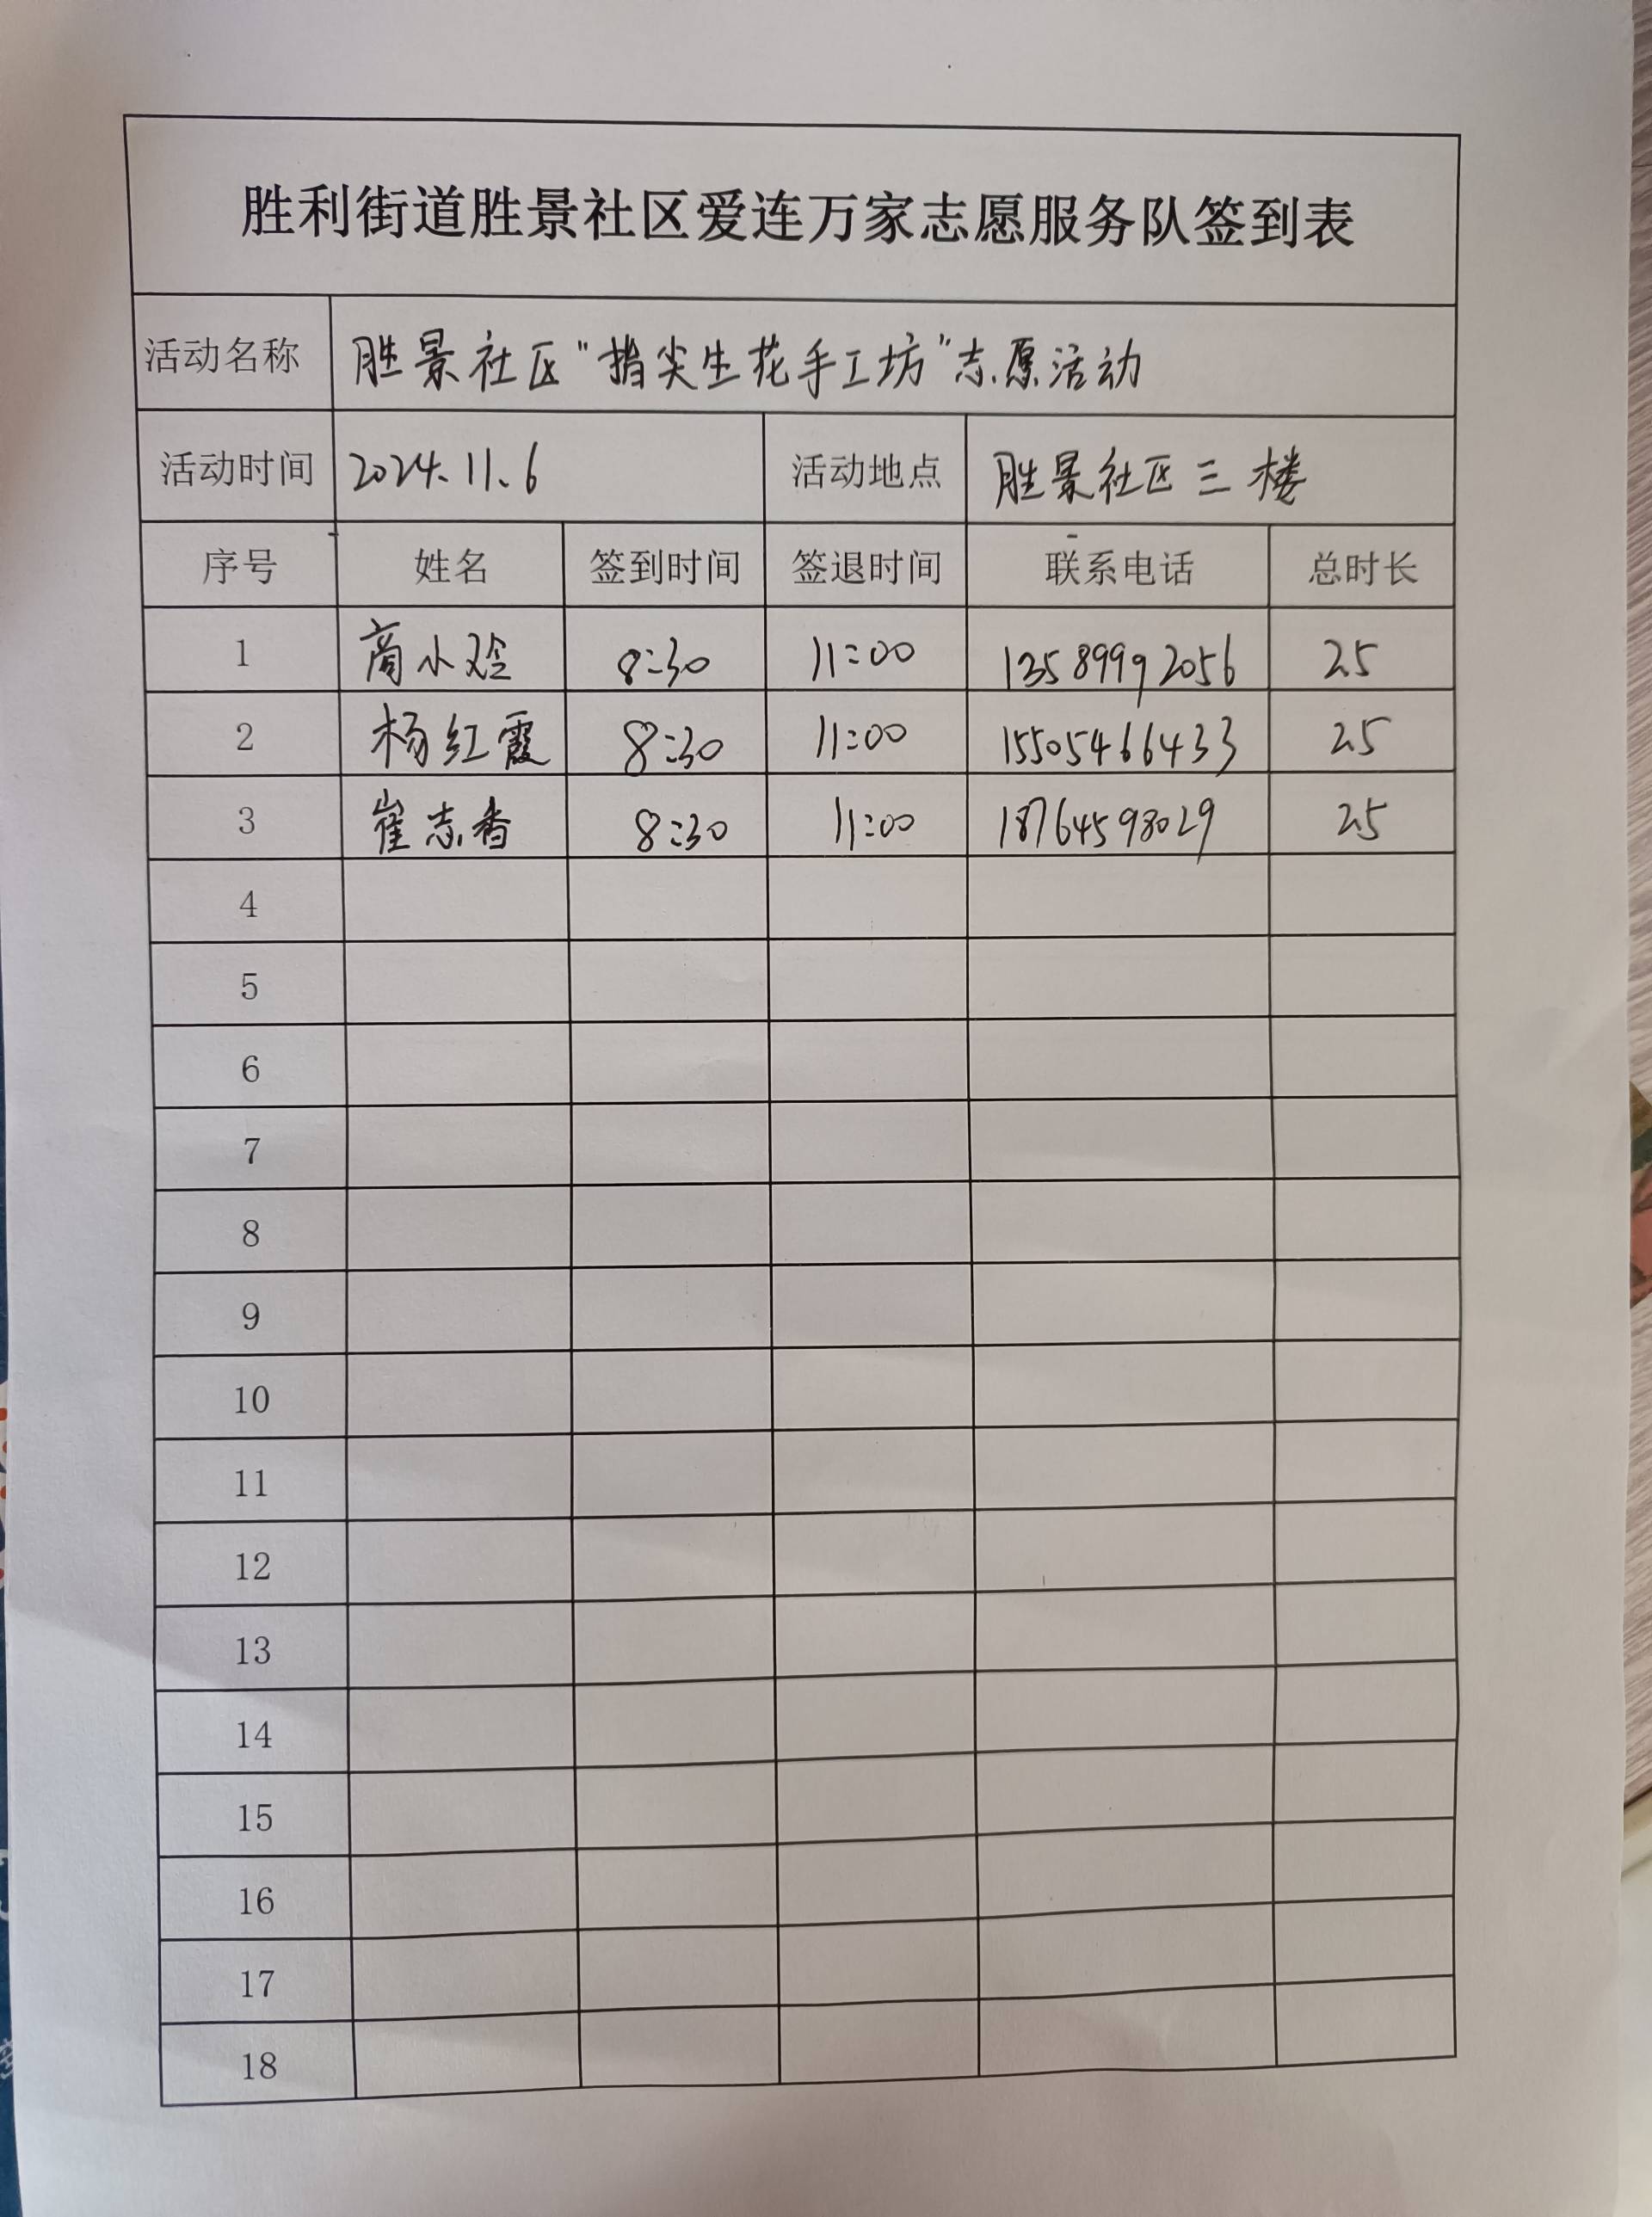 胜利街道胜景社区爱连万家志愿服务队签到表
活动名称 胜景社区“指尖生花手工坊”志愿活动
活动时间 2024.11.6 活动地点 胜景社区三楼
序号 姓名 签到时间 签退时间 联系电话 总时长
1 商小玲 8:30 11:00 13589992056 2.5
2 杨红霞 8:30 11:00 15505466433 2.5
3 崔志香 8:30 11:00 18764598029 2.5
4
5
6
7
8
9
10
11
12
13
14
15
16
17
18